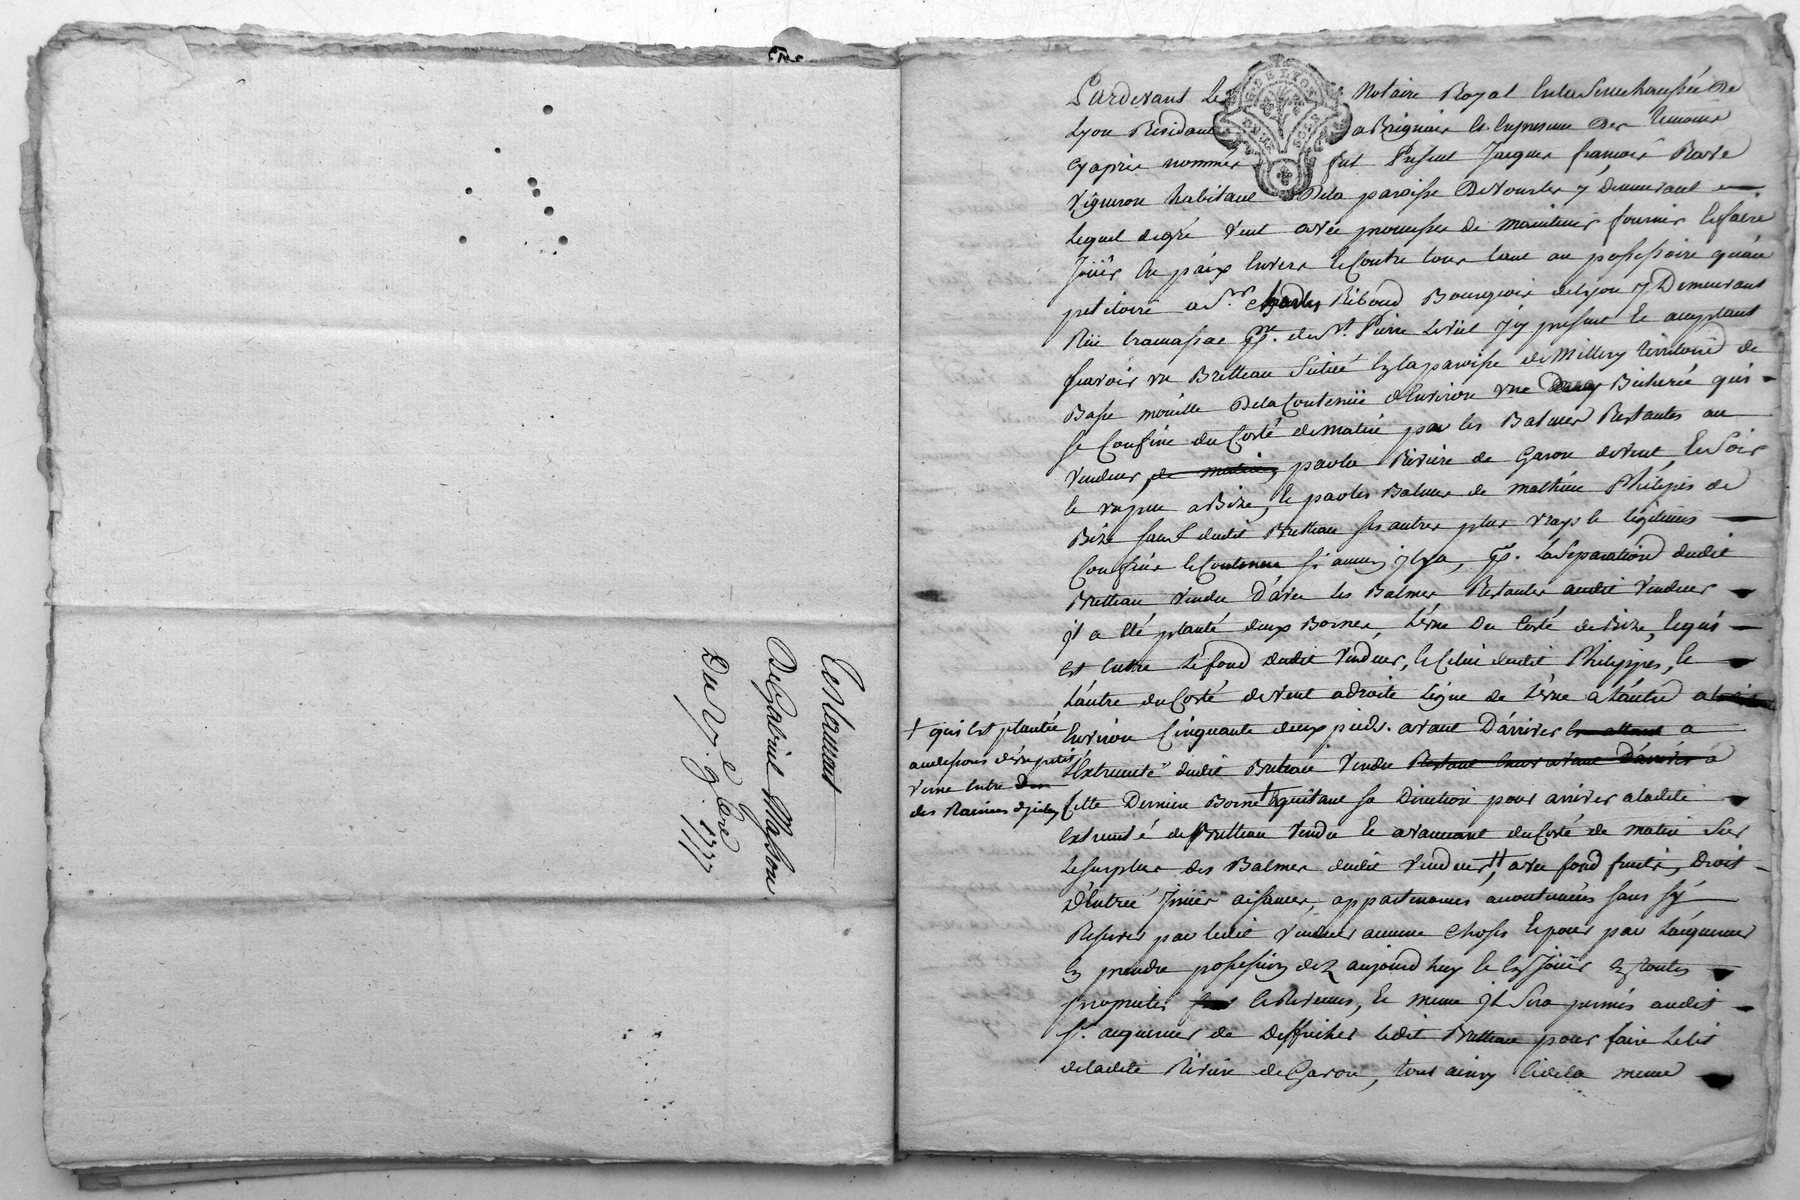 Testament
De Gabriel Masson
Du V.e 9bre 1777
Pardevant Le Notaire Royal En la Senechaussée De
Lyon Residant a Brignais Et En presence Des temoins
Cy apres nommés fut Present Jacques françois
Vigneron habitant De la paroisse De Vourles y Demeurant
Lequel de gré Vent avec promesse de maintenir fournir Et faire
Joüir En paix Envers Et Contre tous tant au possessoire qu'au
petitoire a Sr. Charles Riboud Bourgeois de Lyon y Demeurant
Rüe tramassac psse. de St. Pierre Le viel icy present Et acceptant
scavoir un Brotteau Scitué En la paroisse de Millery territoire de
Basse moüille De la Contenüe d'Environ une Bicherée qui
se Confine du Costé de matin par les Balmes Restantes au
Vendeur de matin, par la Riviere de Garon de vent, Et Soir
de Bize, Et par les Balmes de mathieu Philipes de
Bize sauf dudit Brotteau ses autres plus vrays Et legitimes
Confins Et Contenue si aucuns il y a, pr. La Separation dudit
Brotteau Vendu D'avec les Balmes Restantes audit Vendeur
il a Eté planté deux Bornes, L'une Du Costé de Bize, Lequi
Est Entre Le fond dudit Vendeur, Et Celui dudit Philippes, Et
L'autre du Costé de Vent a droite Ligne de L'une a L'autre
Environ Cinquante deux pieds avant D'arriver a
L'Extremité dudit Broteau Vendu Restant avant D'arriver a
Cette Derniere Borne + Equitant sa Direction pour arriver a ladite
Extremité de Brotteau Vendu Et avancant du Costé de matin Sur
Le surplus des Balmes dudit Vendeur, avec fond fruits, Droit
D'Entrée Issües aisances, appartenances accoutumées sans s'y
Reserver par ledit Vendeur aucune Choses Et pour par L'acquereur
En prendre possession dez aujourd'huy Et En Joüir En toutes
proprietés Et Revenus, Et meme il Sera permis audit
Sr. acquereur de Deffricher Ledit Brotteau pour faire Le lit
de ladite Riviere de Garon, tout ainsy Et de la meme
+ qui Est plantée
au dessous d'un petit
Verne Entre
des Racines